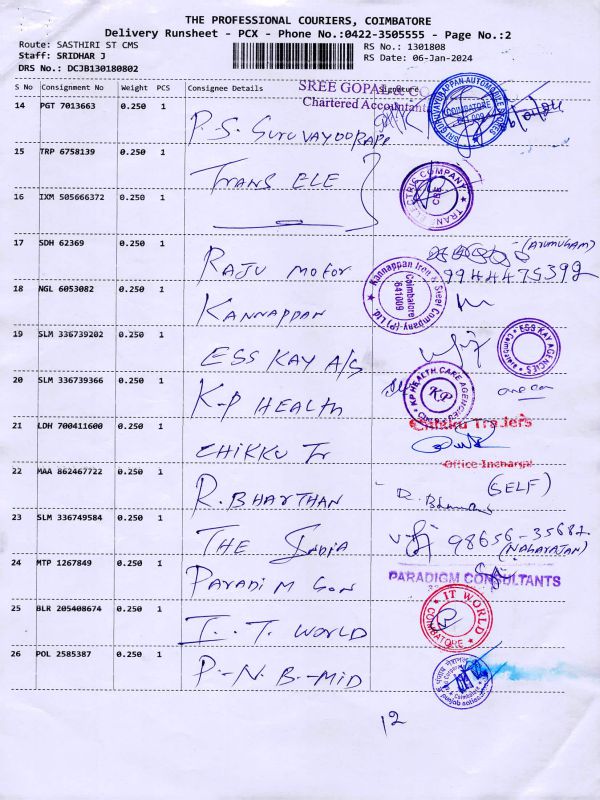 THE PROFESSIONAL COURIERS, COIMBATORE
Delivery Runsheet - PCX - Phone No.:0422-3505555 - Page No.:2
Route: SASTHIRI ST CMS
RS No.: 1301808
Staff: SRIDHAR J
RS Date: 06-Jan-2024
DRS No.: DCJB130180802
SREE GOPAL & CO
Chartered Accountants
S No Consignment No Weight PCS Consignee Details Signature
14 PGT 7013663 0.250 1 P.S. GURUVAYOORAPP
SRI GURUVAYURAPPAN AUTOMOBILE STORES
COIMBATORE
15 TRP 6758139 0.250 1 TRANS ELE
16 IXM 505666372 0.250 1
TRANS ELECTRIC COMPANY
CBE
17 SDH 62369 0.250 1 RAJU MOTOR
(ARUMUGAM)
9944475392
18 NGL 6053082 0.250 1 KANNAPPAN
Kannappan Iron & Steel Company (P) Ltd.
Coimbatore
641009
19 SLM 336739202 0.250 1 ESS KAY A/S
ESS KAY AGENCIES
20 SLM 336739366 0.250 1 K-P HEALTH
KP HEALTH CARE AGENCIES
KP
21 LDH 700411600 0.250 1 CHIKKU Tr
Chikku Traders
Office Incharge
22 MAA 862467722 0.250 1 R. BHARTHAN
(SELF)
23 SLM 336749584 0.250 1 THE India
98656-35687
(NAGARAJAN)
24 MTP 1267849 0.250 1 PARADIM CON
PARADIGM CONSULTANTS
25 BLR 205408674 0.250 1 I.T. WORLD
IT WORLD
COIMBATORE
26 POL 2585387 0.250 1 P.-N.B.-MID
12